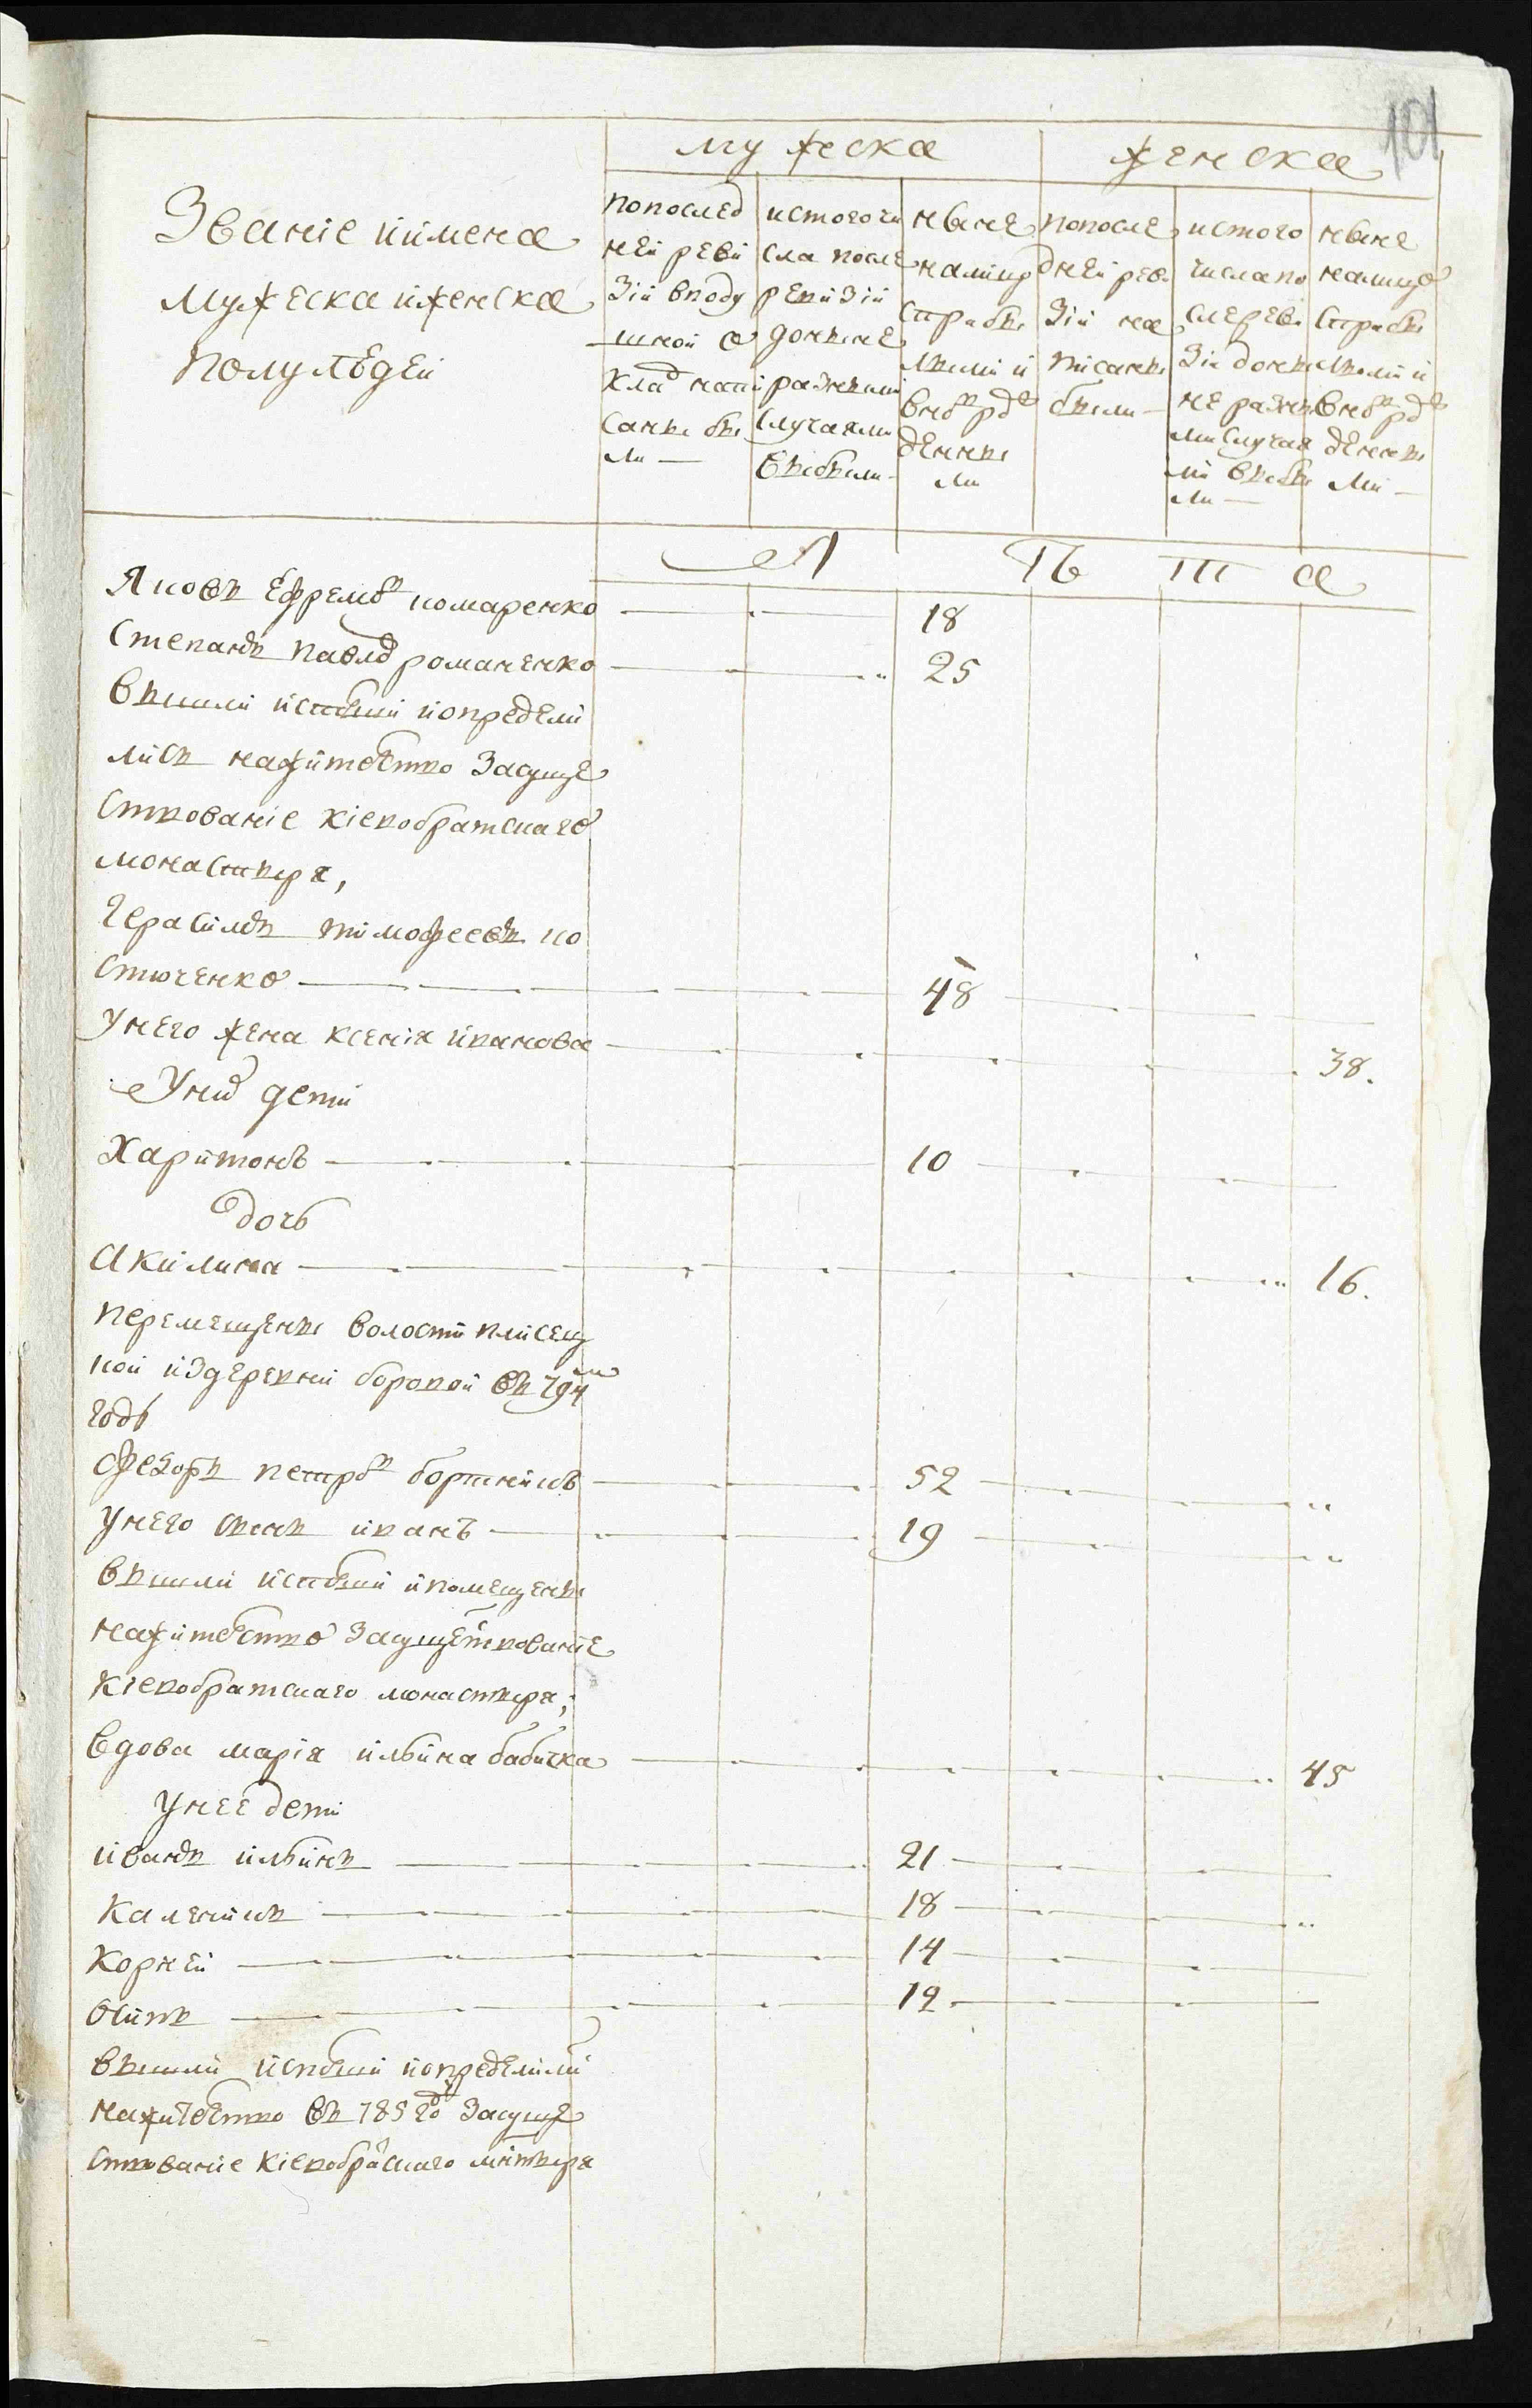 101
Званіе и имена
мужеска и женска
полу людей
мужеска
женска
по послед
ней реви
зіи в поду
шной о
клад напи
саны бы
ли
ис того чи
сла после
ревизіи
до ныне
разными
случаями
выбыли
ныне
налицо
с прибы
лыми и
вновь рож
денны
ми
по после
дней реви
зіи на
писаны
были
ис того
числа по
сле реви
зіи до ны
не разны
ми случая
ми выбы
ли
ныне
налицо
с прибы
лыми и
вновь рож
денны
ми
Л ѣ т а
Яковъ Ефремовъ комаренко 18
Степанъ павловъ романенко 25
вышли и определи
лись на жителство за суще
ствованіе кіевобратскаго
монастыря,
Герасимъ тимофеевъ ко
стюченко 48
у него жена ксенія иванова 38.
у них дети
Харитонъ 10
дочь
Акилина 16.
перемещены волости плисец
кой из деревни боровой въ 794м
годѣ
Федоръ петровъ бортникъ 52
у него сынъ иванъ 19
вышли и помещены
на жителство за существованіе
кіевобратскаго монастыря;
вдова марія ильина бабичка 45
у нее дети
иванъ ильинъ 21
каленикъ 18
корней 14
Осипъ 12
вышли и определили
на жителство въ 785 году за суще
ствованіе кіевобрацкаго мнтыря